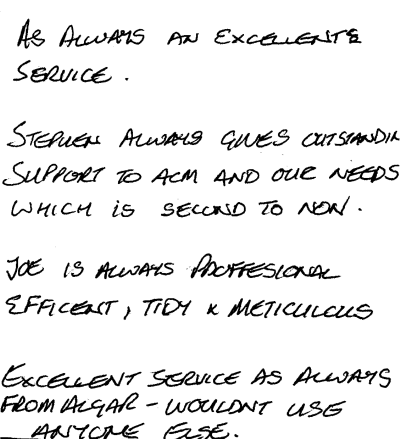 AS ALWAYS AN EXCELLENTE
SERVICE.
STEPHEN ALWAYS GIVES OUTSTANDIN
SUPPORT TO ACM AND OUR NEEDS
WHICH IS SECOND TO NON.
JOE IS ALWAYS PROFFESIONAL
EFFICENT, TIDY & METICULOUS
EXCELLENT SERVICE AS ALWAYS
FROM ALGAR - WOULDNT USE
ANYONE ELSE.